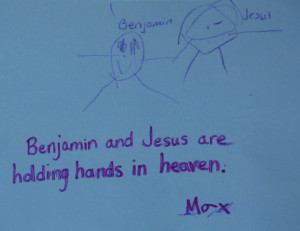 Benjamin
Jesus
Benjamin and Jesus are
holding hands in heaven.
Max